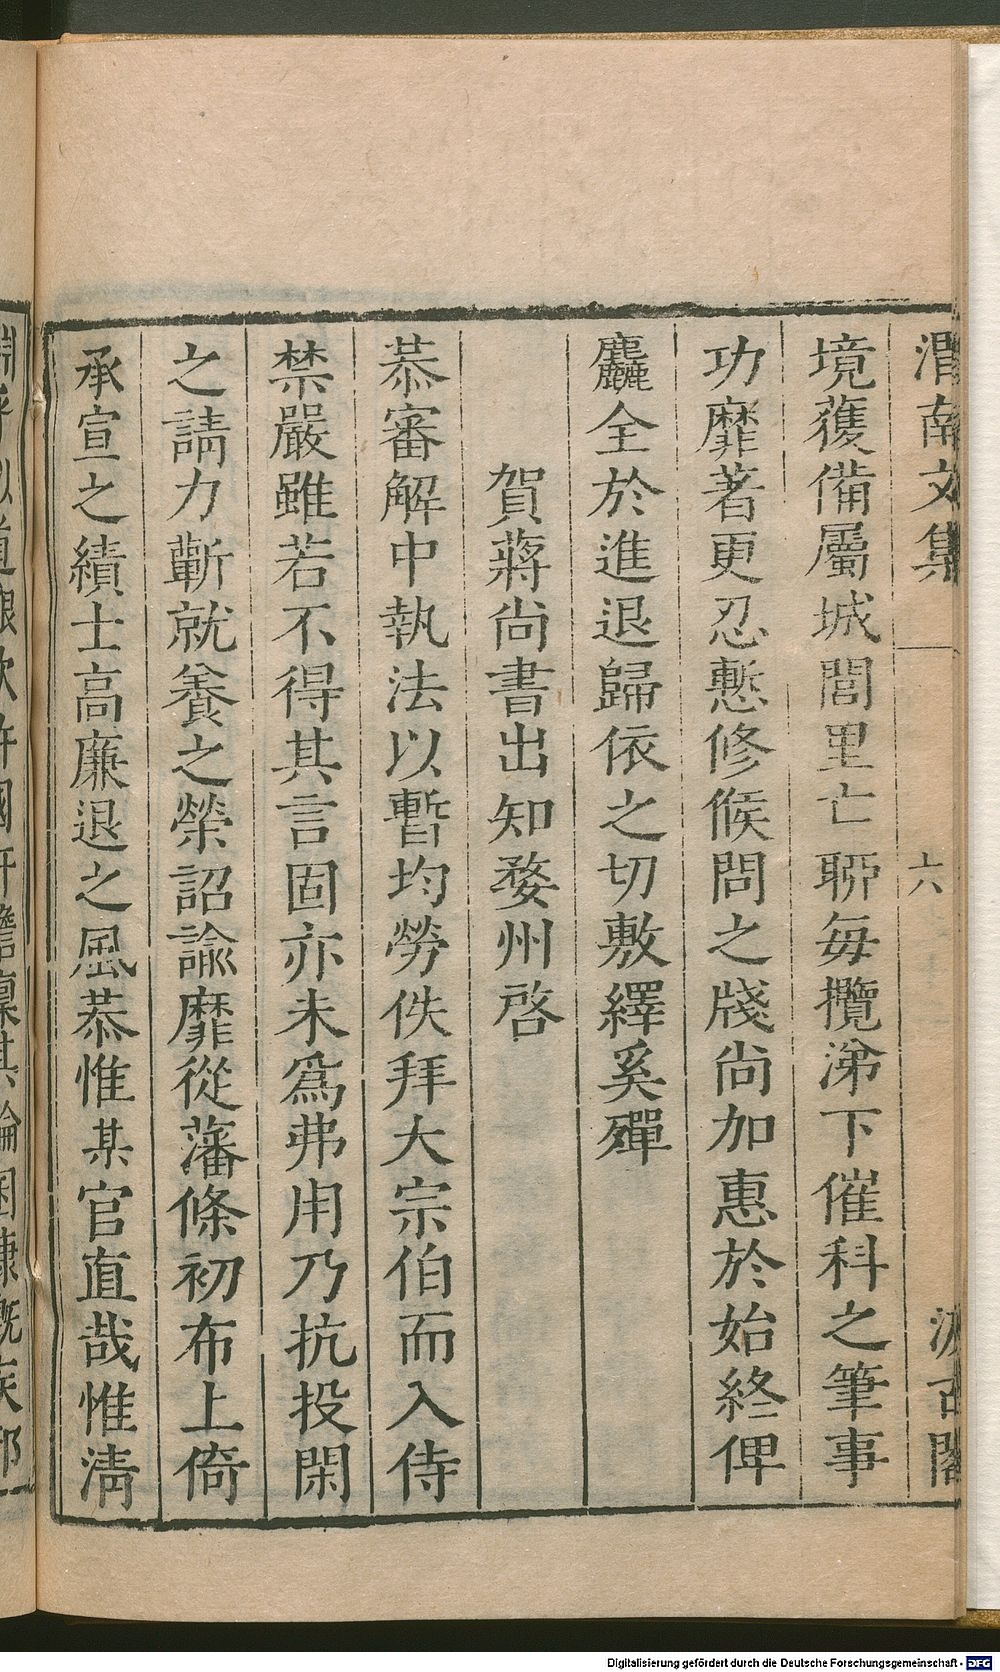 渭南文集 六 汲古閣
境獲備屬城閭里亡聊每攬涕下催科之筆事
功靡著更忍慙修候問之牋尚加惠於始終俾
麤全於進退歸依之切敷繹奚殫
賀蔣尚書出知婺州啓
恭審解中執法以暫均勞佚拜大宗伯而入侍
禁嚴雖若不得其言固亦未爲弗用乃抗投閑
之請力蘄就養之榮詔諭靡從藩條初布上倚
承宣之績士高廉退之風恭惟某官直哉惟清
Digitalisierung gefördert durch die Deutsche Forschungsgemeinschaft - DFG